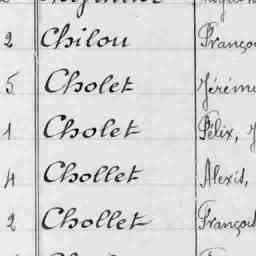 2 Chilou Franço
5 Cholet Jérém
1 Cholet Félix,
4 Chollet Alexis,
2 Chollet François